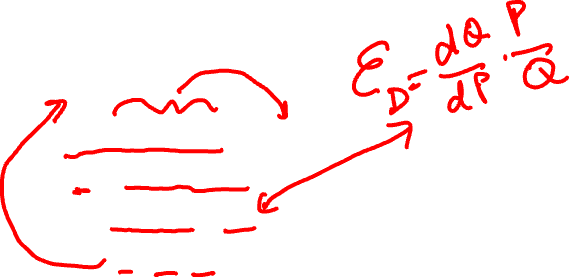 ε_D = dQ/dP · P/Q